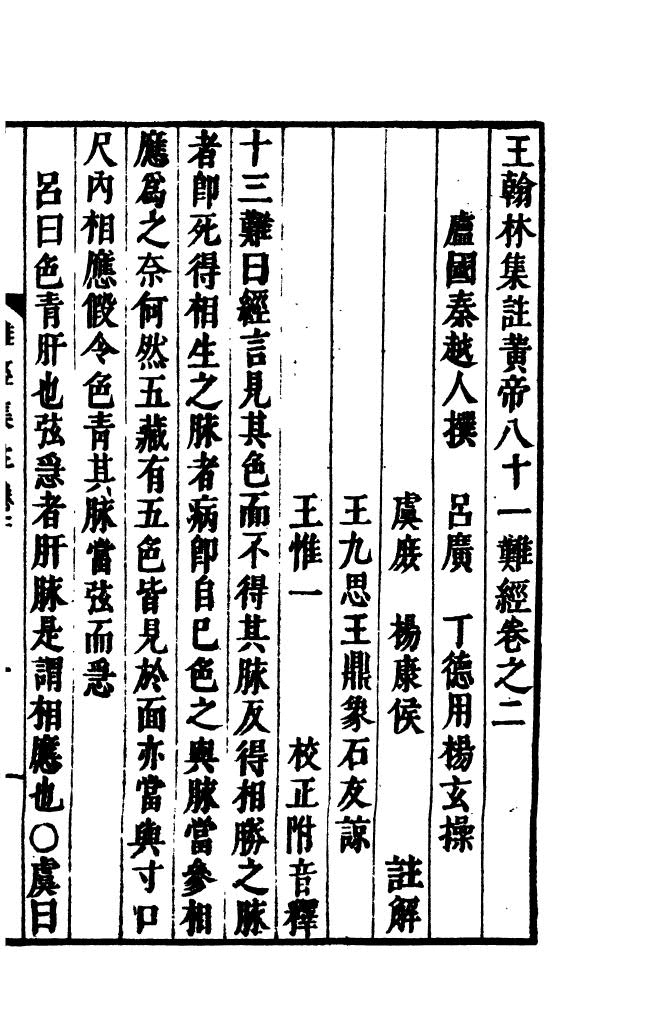 王翰林集註黃帝八十一難經卷之二
盧國秦越人撰　呂廣　丁德用　楊玄操
虞庻　楊康侯　註解
王九思王鼎象石友諒
王惟一　校正附音釋
十三難曰經言見其色而不得其脉反得相勝之脉
者卽死得相生之脉者病卽自巳色之與脉當參相
應爲之奈何然五藏有五色皆見於面亦當與寸口
尺內相應假令色青其脉當弦而急
呂曰色青肝也弦急者肝脉是謂相應也〇虞曰